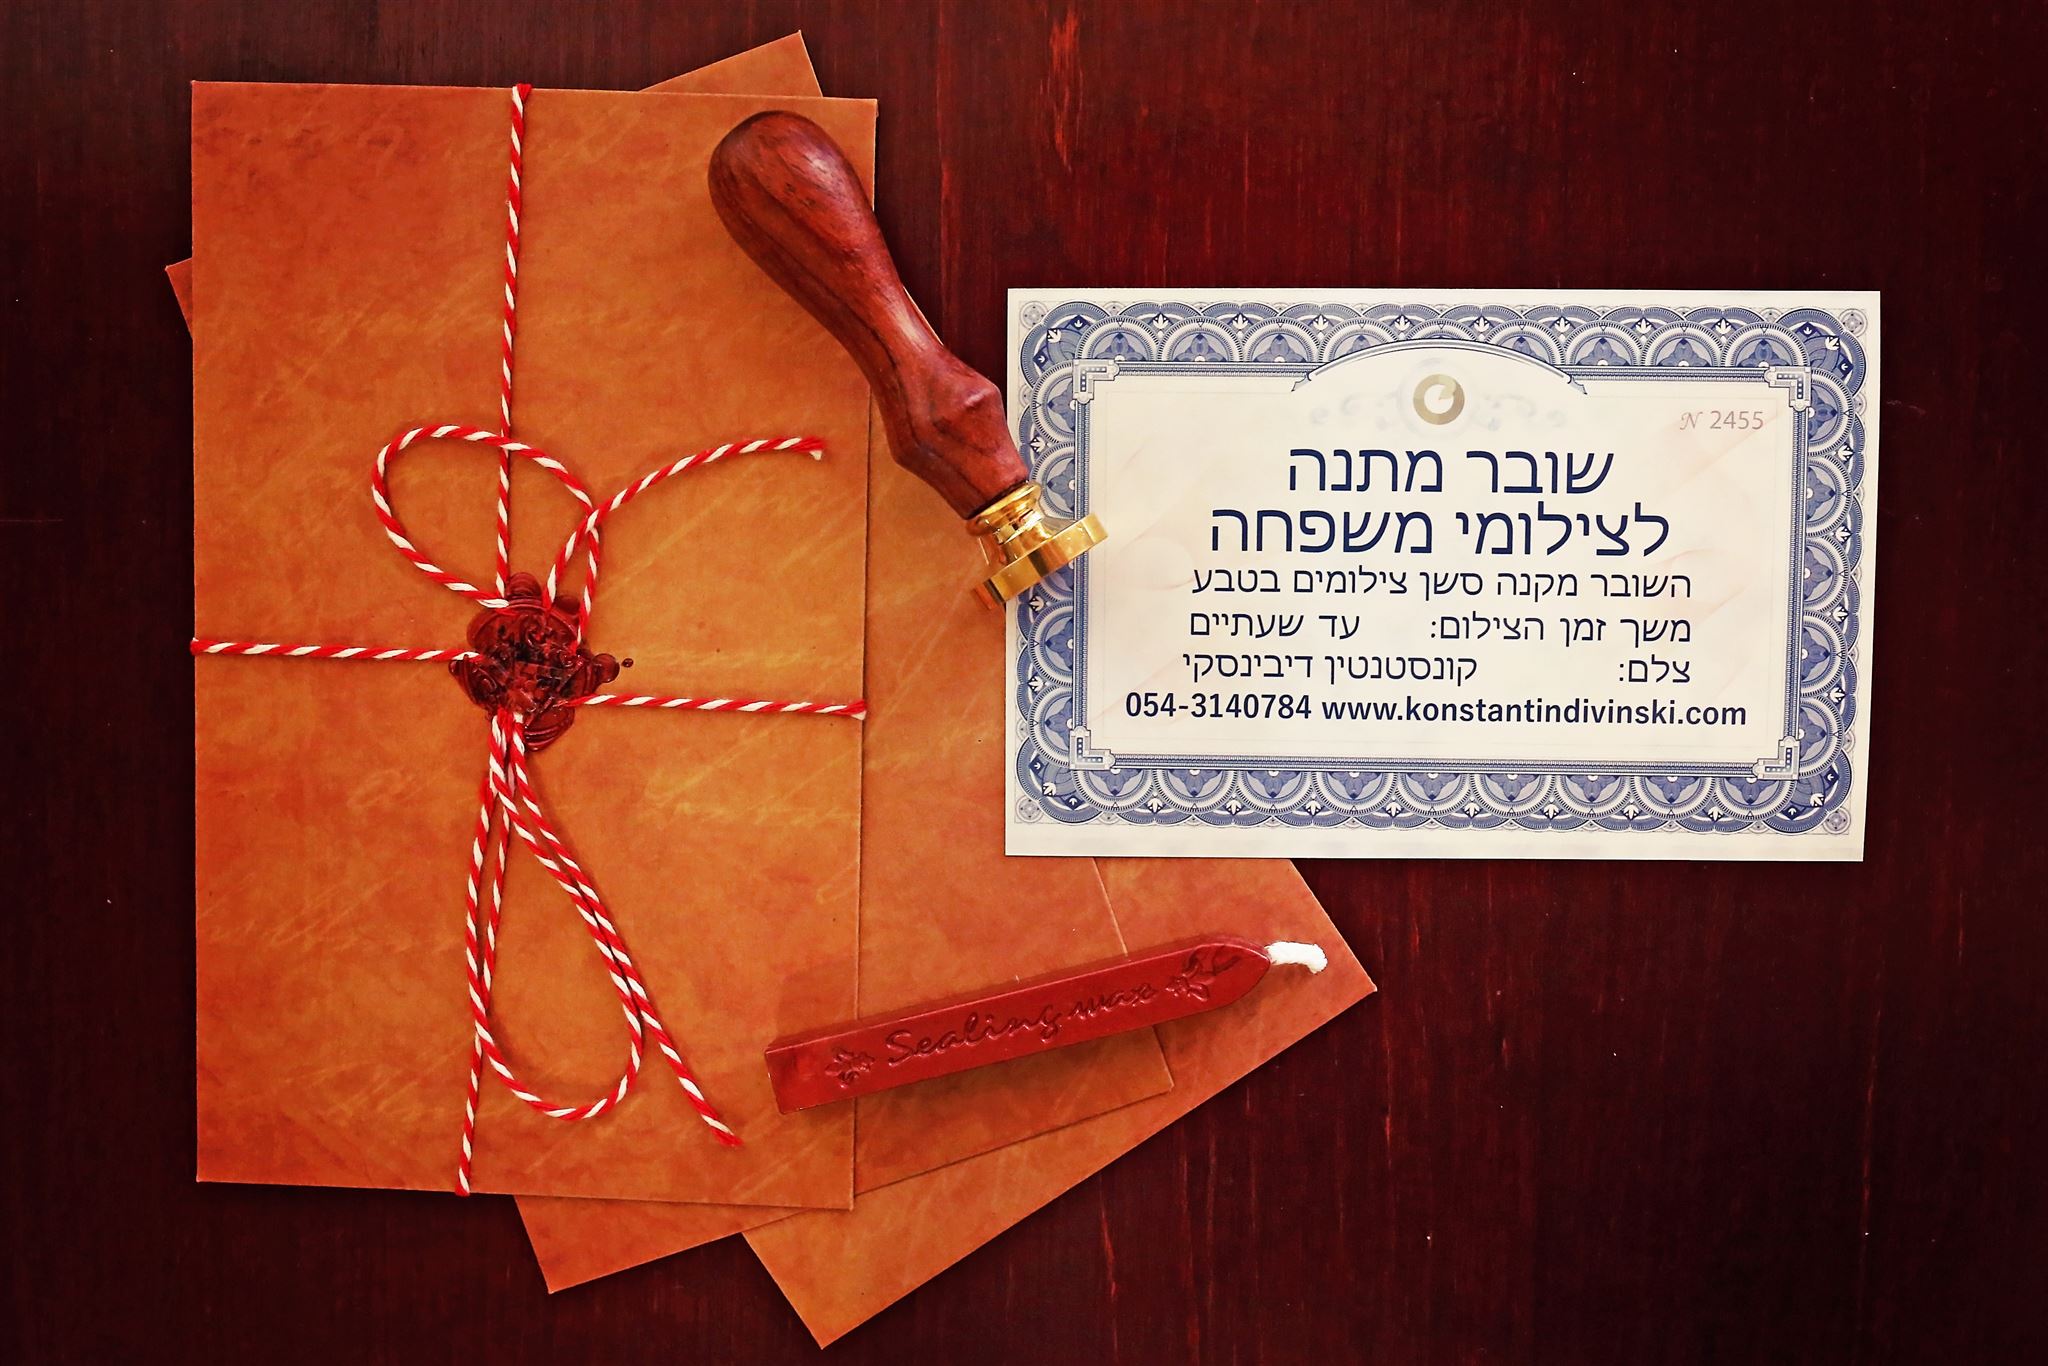 N 2455
שובר מתנה
לצילומי משפחה
השובר מקנה סשן צילומים בטבע
משך זמן הצילום: עד שעתיים
צלם: קונסטנטין דיבינסקי
054-3140784 www.konstantindivinski.com
Sealing wax